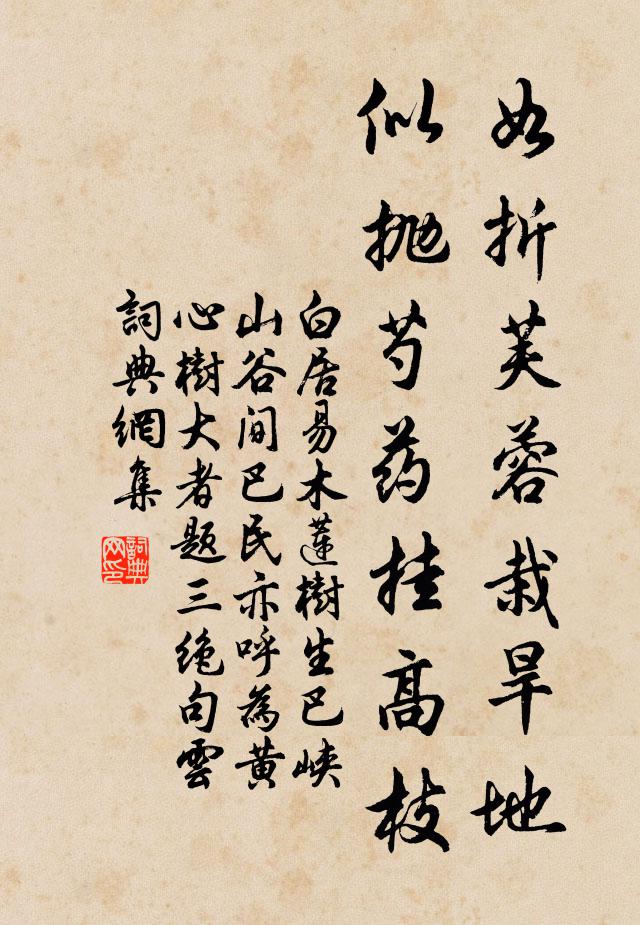 如折芙蓉栽旱地
似抛芍药挂高枝
白居易木蓮樹生巴峽
山谷间巴民亦呼為黄
心樹大者题三绝句雲
詞典網集
詞典網印